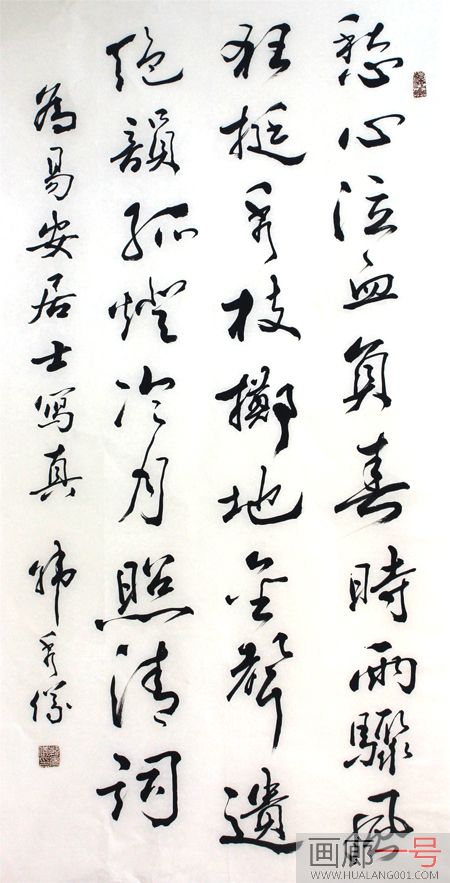 愁心泣血負春時雨驟風
狂挺秀枝擲地金聲遺
絕韻孤燈冷月照清詞
為易安居士寫真 秀
画廊一号
WWW.HUALANG001.COM